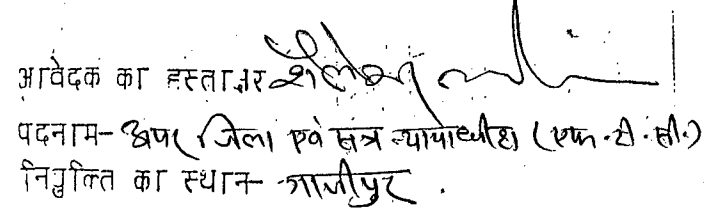 आवेदक का हस्ताक्षर
पदनाम- अपर जिला एवं सत्र न्यायाधीश (एफ.टी.सी.)
नियुक्ति का स्थान- गाजीपुर.